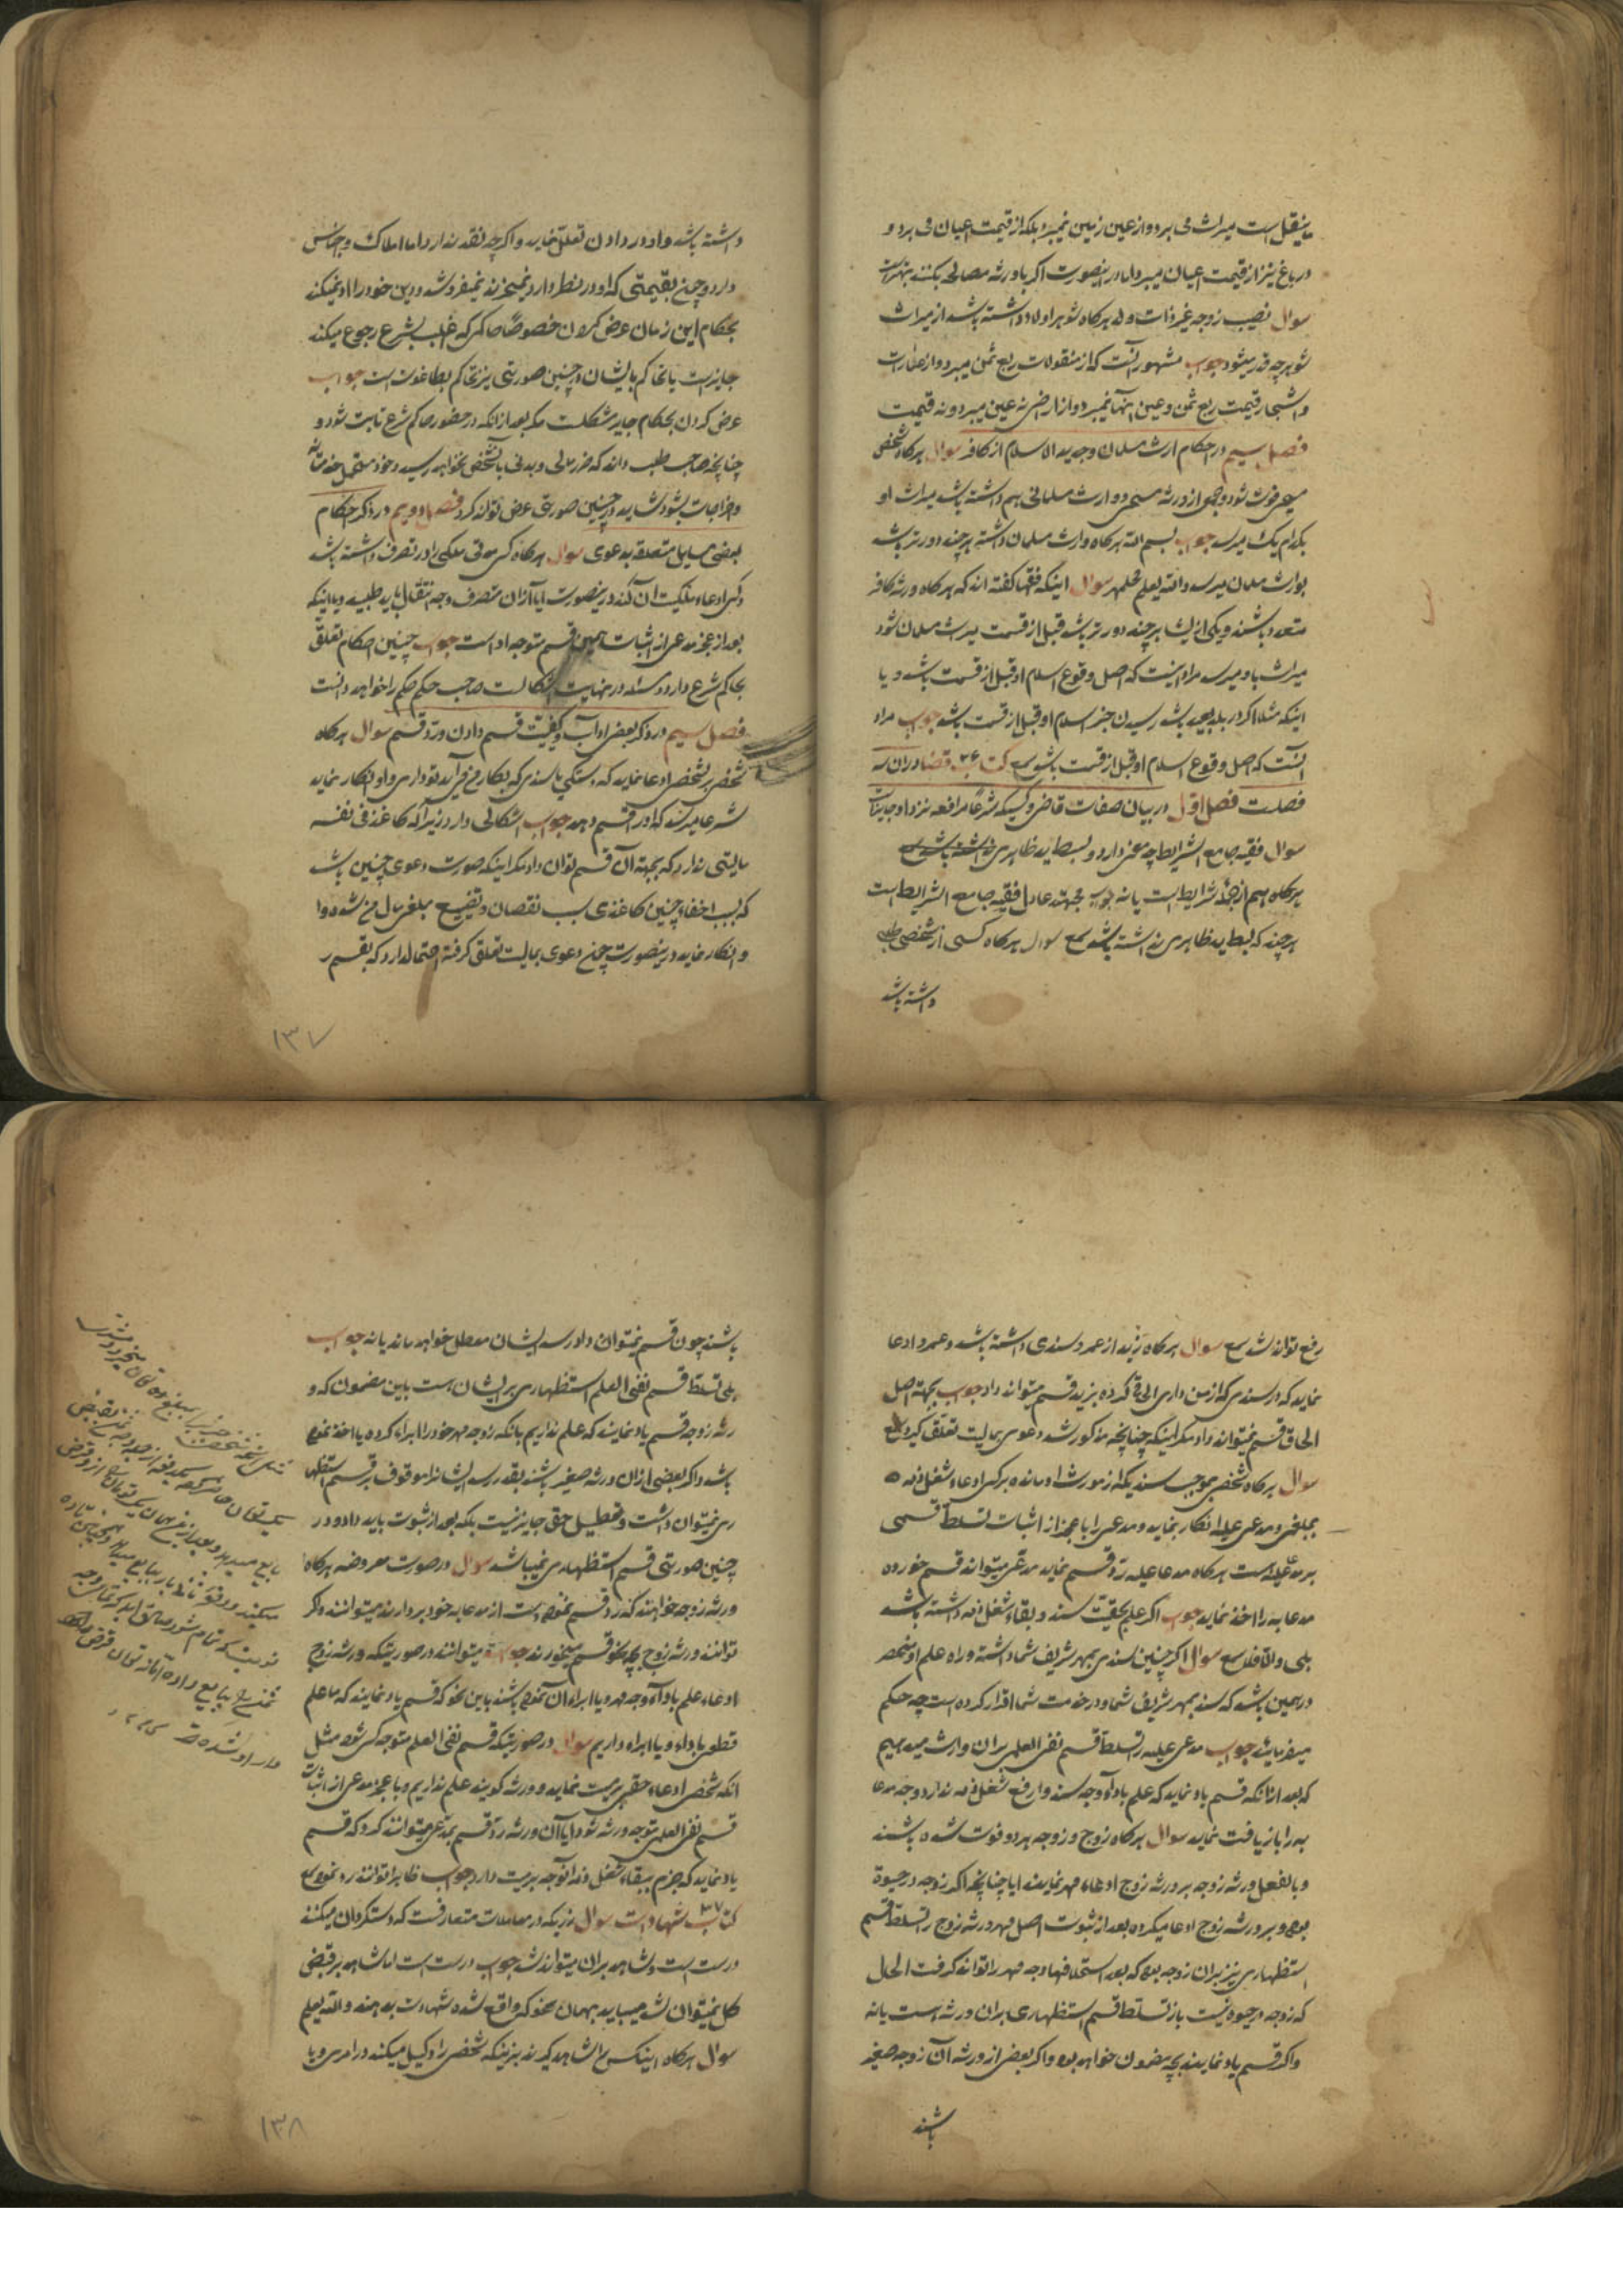 ینقل است میراث می برد و از عین زمین نمیبرد بلکه از قیمت اعیان می برد و
در باغ نیز از قیمت اعیان میبرد اما در اینصورت اگر با ورثه مصالحه بکنند بهتر است
سوال نصیب زوجه غیر ذات ولد هرگاه شوهر اولاد داشته باشد از میراث
شوهر چه قدر میشود جواب مشهور آنست که از منقولات ربع ثمن میبرد و از عمارات
و اشجار قیمت ربع ثمن و عین انها نمیبرد و از اراضی نه عین میبرد و نه قیمت
فصل سیم در احکام ارث مسلمان و جدید الاسلام از کافر سوال هرگاه شخص
مسیحی فوت شود و جمعی از ورثه مسیحی و وارث مسلمانی هم داشته باشد میراث او
بکدام یک میرسد جواب بسم الله هرگاه وارث مسلمان داشته هر چند دورتر باشد
بوارث مسلمان میرسد والله یعلم سوال اینکه فقها گفته اند که هرگاه ورثه کافر
متعدد باشند و یکی از ایشان هر چند دورتر باشد قبل از قسمت میراث مسلمان شود
میراث باو میرسد مراد اینست که اصل وقوع اسلام او قبل از قسمت باشد و یا
اینکه مثلا اگر در بلد بعید باشد رسیدن خبر اسلام او قبل از قسمت باشد جواب مراد
انست که اصل وقوع اسلام او قبل از قسمت باشد مع کتاب ۲۶ قضا و در ان سه
فصلست فصل اول در بیان صفات قاضی و کسیکه شرعا مرافعه نزد او جایز است
سوال فقیه جامع الشرایط چه معنی دارد و بسط ید ظاهری
هرگاه هم از جمله شرایط است یا نه جواب مجتهد عادل فقیه جامع الشرایط است
هر چند که بسط ید ظاهری نداشته باشد مع سوال هرگاه کسی از شخصی طلبی
داشته باشد
داشته باشد و او در دادن تعلل نماید و اگر چه نقد ندارد اما املاک و اجناس
دارد و چون بقیمتی که او در نظر دارد نمیخرند نمیفروشد و دین خود را ادا نمیکند
بحکام این زمان عرض کردن خصوصا حاکمی که اغلب بشرع رجوع میکند
جایز است یا تحاکم بایشان در چنین صورتی نیز تحاکم بطاغوت است جواب
عرض کردن بحکام جایر مشکلست مگر بعد از انکه در حضور حاکم شرع ثابت شود و
چنانچه صاحب طلب داند که ضرر مالی و بدنی بآنشخص نخواهد رسید و خود متحمل
و اخراجات بشود شاید در چنین صورتی عرض تواند کرد فصل دویم در ذکر احکام
بعضی مسایل متعلقه بدعوی سوال هرگاه کسی مدتی ملکی را در تصرف داشته باشد
و کسی ادعاء ملکیت آن کند در ینصورت ایا از ان متصرف وجه انتقال باید طلبید و یا اینکه
بعد از عجز مدعی از اثبات همین قسم متوجه او است جواب چنین احکام تعلق
بحاکم شرع دارد و مسئله در نهایت اشکالست صاحب حکم حکم را خواهد دانست
فصل سیم در ذکر بعضی اداب و کیفیت قسم دادن و رد قسم سوال هرگاه
شخصی بر شخصی ادعا نماید که دستکی یا سندی که بکار من می آید تو داری و او انکار نماید
شرعا میرسد که او را قسم دهد جواب اشکالی دارد زیرا که کاغذ فی نفسه
مالیتی ندارد که بجهة آن قسم توان داد مگر اینکه صورت دعوی چنین باشد
که بسبب اخفاء چنین کاغذی سبب نقصان و تضییع مبلغی مال من شده و او
و انکار نماید در ینصورت چون دعوی بمالیت تعلق گرفته احتمال دارد که بقسم ر
۱۳۷
رفع تواند شد مع سوال هرگاه زید از عمرو سندی داشته باشد و عمرو ادعا
نماید که در سندی که از من داری الحاقی کرده بزید قسم میتواند داد جواب بجهة اصل
الحاق قسم نمیتواند داد مگر اینکه چنانچه مذکور شد دعوی بمالیت تعلق گیرد مع
سوال هرگاه شخصی بموجب سندیکه از مورث او مانده بر کسی ادعاء شغل ذمه
بمبلغی و مدعی علیه انکار نماید و مدعی را با عجز از اثبات تسلط قسمی
بر مدعی علیه است هرگاه مدعا علیه رد قسم نماید مدعی میتواند قسم خورده
مدعا به را اخذ نماید جواب اگر علم بحقیت سند و بقاء شغل ذمه داشته باشد
بلی و الا فلا مع سوال اگر چنین سندی بمهر شریف شما داشته و راه علم او منحصر
در همین باشد که سند بمهر شریف شما و در خدمت شما اقرار کرده است چه حکم
میفرمایند جواب مدعی علیه را تسلط قسم نفی العلم بر ان وارث میدهیم
که بعد از انکه قسم یاد نماید که علم باداء وجه سند و ارفع شغل ذمه ندارد وجه مدعا
به را بازیافت نماید سوال هرگاه زوج و زوجه هر دو فوت شده باشند
و بالفعل ورثه زوجه بر ورثه زوج ادعاء مهر نمایند ایا چنانچه اگر زوجه در حیوة
بوده و بر ورثه زوج ادعا میکرده بعد از ثبوت اصل مهر ورثه زوج را تسلط قسم
استظهاری نیز بر ان زوجه بوده که بعد استحلافها وجه مهر را تواند گرفت الحال
که زوجه در حیوة نیست باز تسلط قسم استظهاری بر ان ورثه است یا نه
و اگر قسم یاد نمایند بچه مضمون خواهد بود و اگر بعضی از ورثه آن زوجه صغیر
باشند
باشند چون قسم نمیتوان داد رسد ایشان معطل خواهد ماند یا نه جواب
بلی تسلط قسم نفی العلم استظهاری بر ایشان هست باین مضمون که و
رثه زوجه قسم یاد نمایند که علم نداریم بانکه زوجه مهر خود را ابراء کرده یا اخذ نموده
باشد و اگر بعضی از ان ورثه صغیر باشند بقدر رسد ایشان را موقوف بر قسم استظها
ری نمیتوان داشت و تعطیل حق جایز نیست بلکه بعد از ثبوت باید داد و در
چنین صورتی قسم استظهاری نمیباشد سوال در صورت معروضه هرگاه
ورثه زوجه خواهند که رد قسم نموده دست از مدعا به خود بردارند میتوانند و اگر
توانند ورثه زوج بچه نحو قسم میخورند جواب میتوانند در صورتیکه ورثه زوج
ادعاء علم باداء وجه مهر و یا ابراء ان نموده باشند باین نحو که قسم یاد نمایند که ما علم
قطعی باداء و یا ابراء داریم سوال در صورتیکه قسم نفی العلم متوجه کسی شود مثل
انکه شخصی ادعاء حقی بر میت نماید و ورثه گویند علم نداریم و با عجز مدعی از اثبات
قسم نفی العلم متوجه ورثه شود ایا آن ورثه رد قسم بمدعی میتوانند کرد که قسم
یاد نماید که جزم ببقاء شغل ذمه انوجه بر میت دارد جواب ظاهرا توانند رد نمود مع
کتاب ۲۷ شهادات سوال زریکه در معاملات متعارفست که دستگردان میکنند
درست است و شاهد بر ان میتواند شد جواب درست است اما شاهد بر قبض
کل نمیتوان شد میباید بهمان نحو که واقع شده شهادت بدهند والله یعلم
سوال هرگاه اینکس را شاهد گیرند بر اینکه شخصی را وکیل میکند در امری و یا
۱۳۸